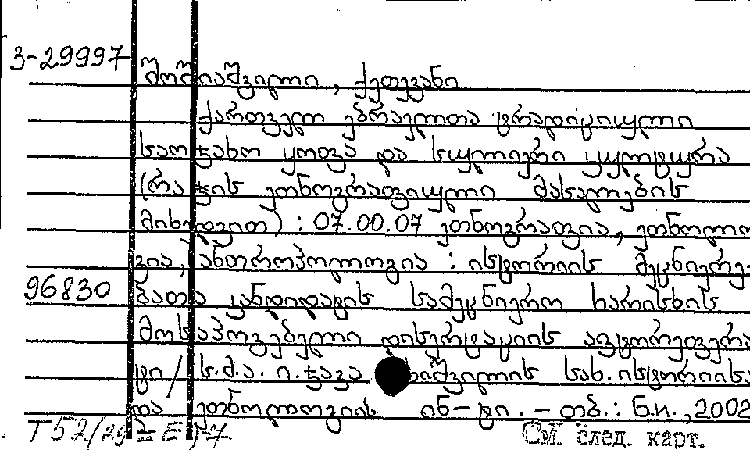 3-29997
მოშიაშვილი, ქეთევანი
ქართველ ებრაელთა ტრადიციული
საოჯახო ყოფა და სულიერი კულტურა
(რაჭის ეთნოგრაფიული მასალების
მიხედვით) : 07.00.07 ეთნოგრაფია, ეთნოლო
გია, ანთროპოლოგია : ისტორიის მეცნიერე
96830 ბათა კანდიდატის სამეცნიერო ხარისხის
მოსაპოვებელი დისერტაციის ავტორეფერა
ტი / ს.მ.ა. ი.ჯავახიშვილის სახ. ისტორიისა
და ეთნოლოგიის ინ-ტი. – თბ.: ნ.ი., 2002
T52/29
См. след. карт.